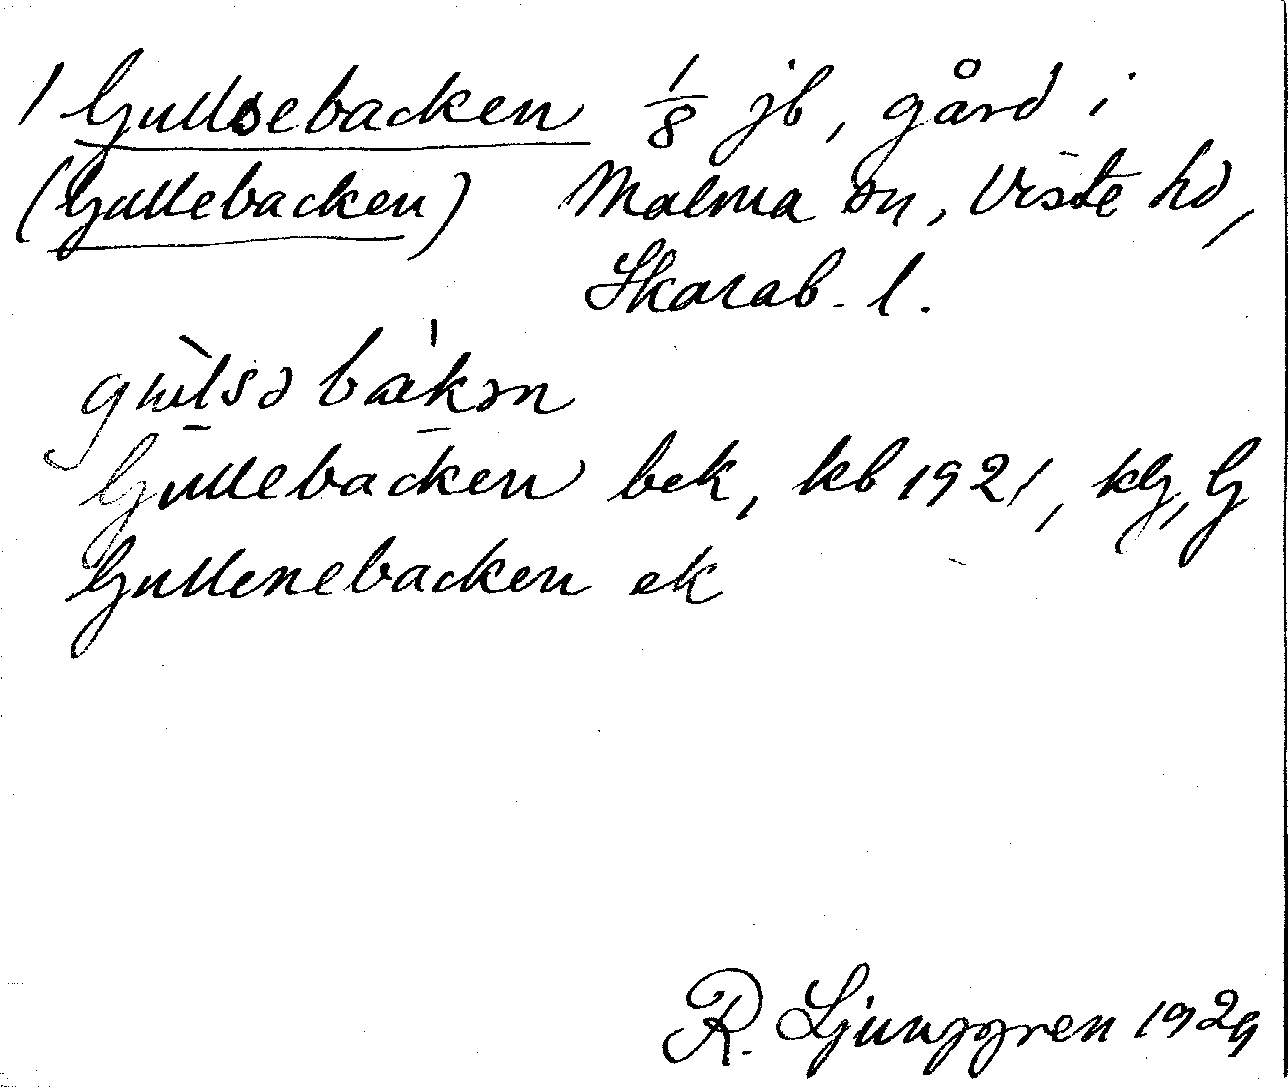 1 Gullsebacken 1/8 jb, gård i
(Gullebacken) Malma sn, Viste hd,
Skarab. l.
gùlsə bákən
Gullebacken bek, kb 1921, kG, G
Gullenebacken ek
R. Ljunggren 1929